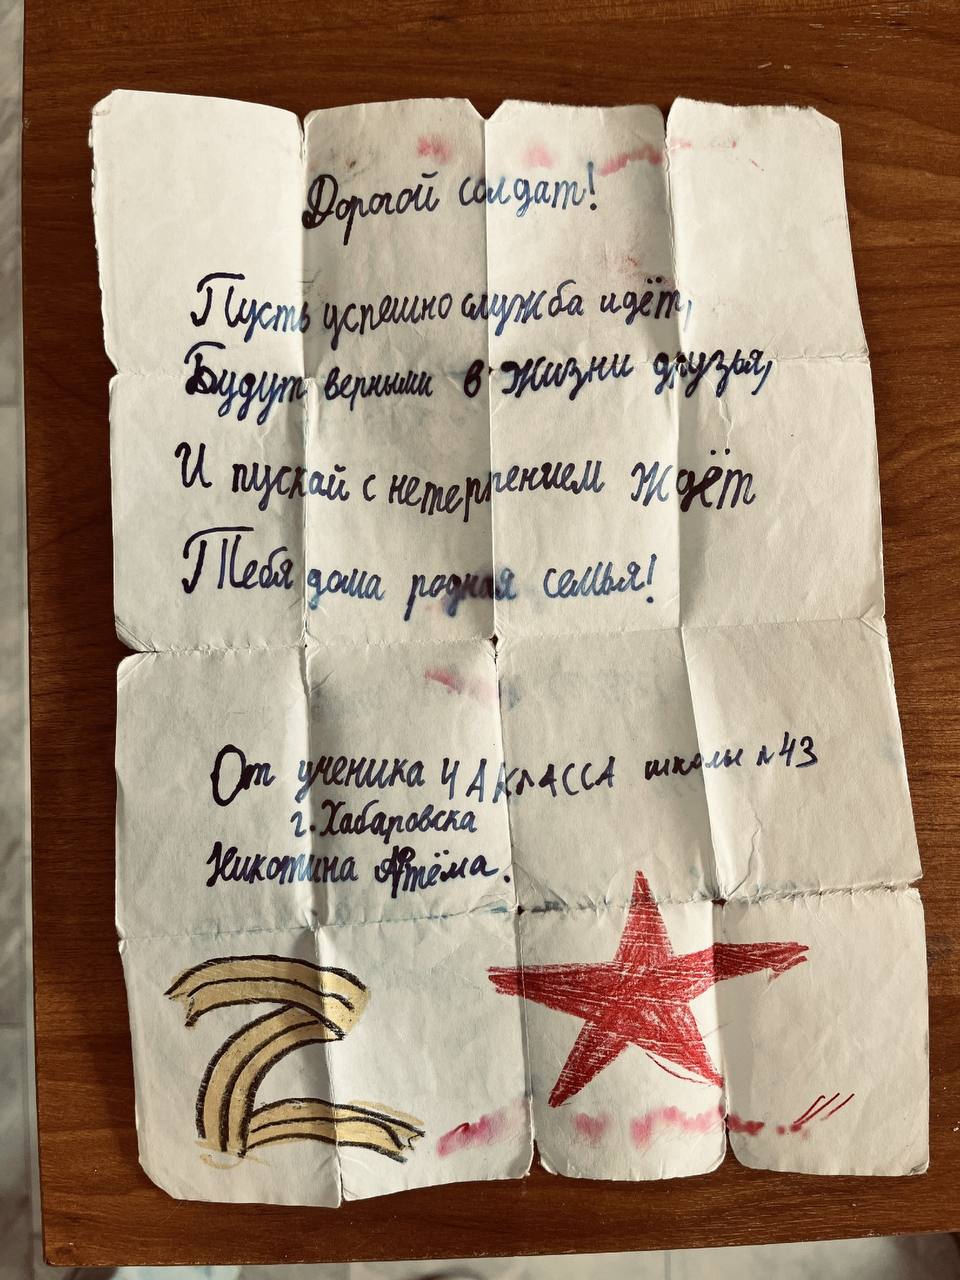 Дорогой солдат!
Пусть успешно служба идёт,
Будут верными в жизни друзья,
И пускай с нетерпением ждёт
Тебя дома родная семья!
От ученика 4 А КЛАССА школы N43
г. Хабаровска
Никотина Артёма.
Z